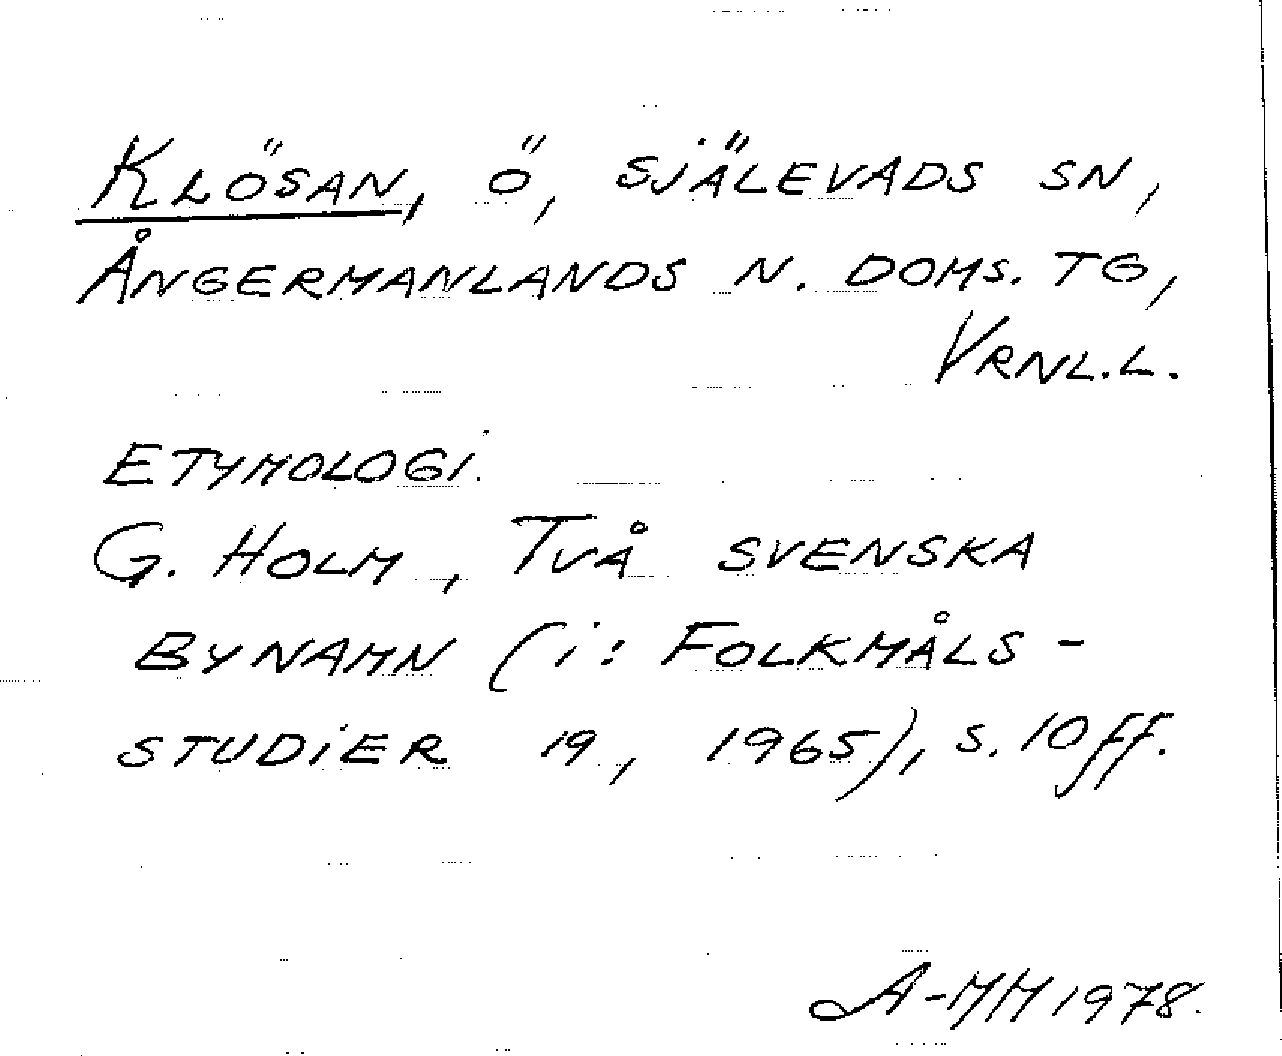 KLÖSAN, Ö, SJÄLEVADS SN,
ÅNGERMANLANDS N. DOMS. TG,
VRNL.L.
ETYMOLOGI.
G. HOLM, TVÅ SVENSKA
BYNAMN (i: FOLKMÅLS-
STUDIER 19, 1965), S. 10 ff.
A-MM 1978.